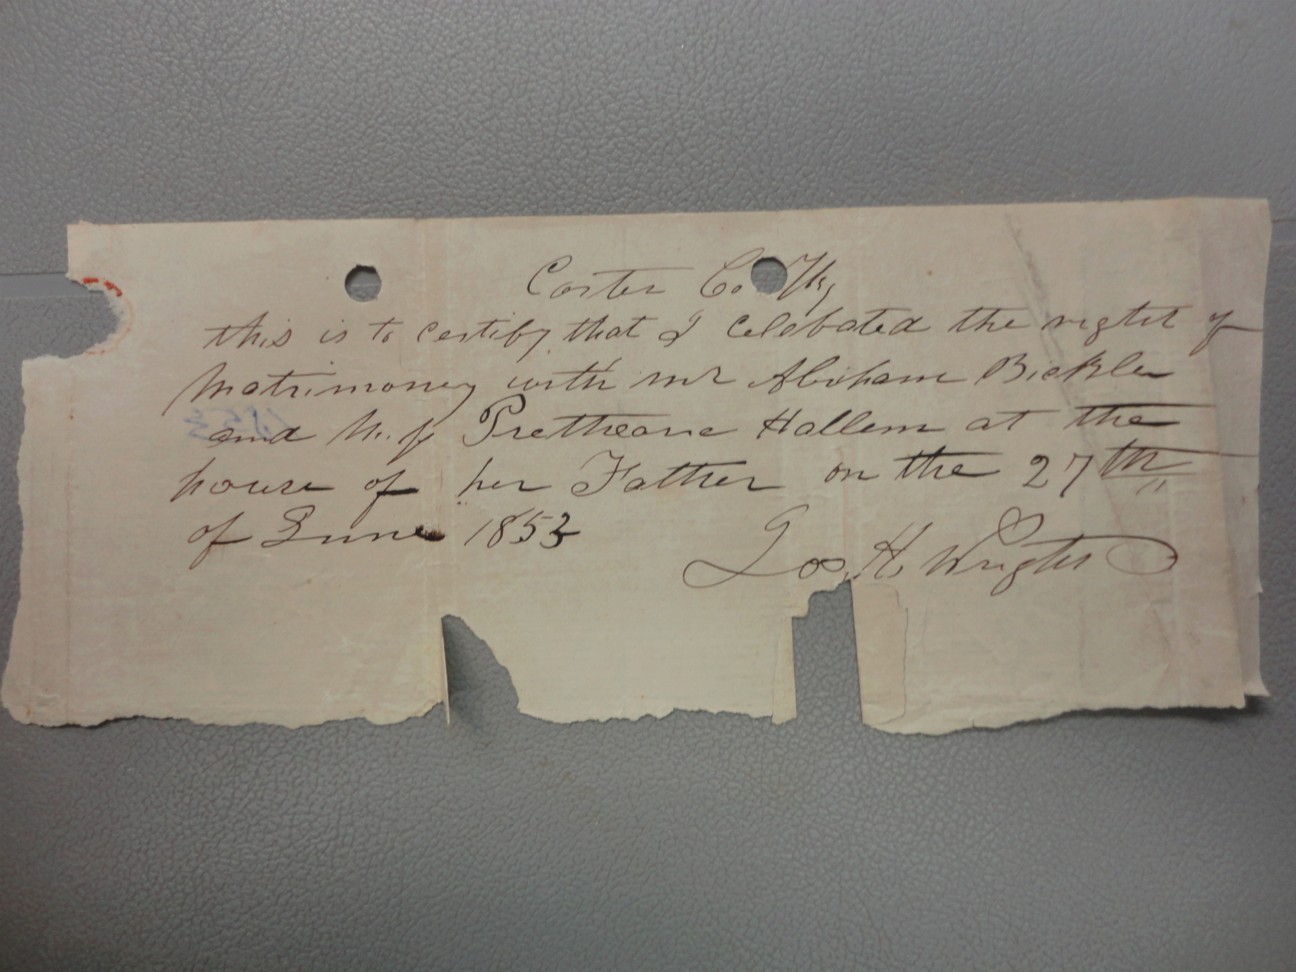 Carter Co Ky
this is to certify that I Celebated the right of
Matrimony with mr Abraham Bickler
and M.s Hallem at the
house of her Father on the 27th
of June 1853
Jos. H. Wright